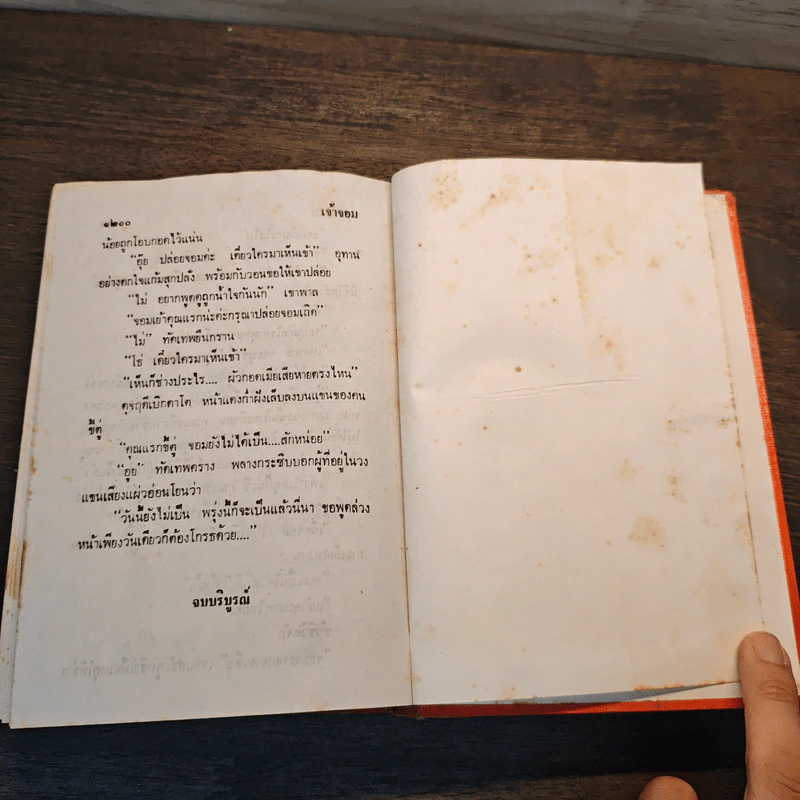 ๑๒๐๐ เจ้าจอม
น้อยถูกโอบกอดไว้แน่น
“อุ๊ย ปล่อยจอมค่ะ เดี๋ยวใครมาเห็นเข้า” อุทาน
อย่างตกใจแก้มสุกปลั่ง พร้อมกับวอนขอให้เขาปล่อย
“ไม่ อยากพูดดูถูกน้ำใจกันนัก” เขาพาล
“จอมเย้าคุณแรกน่ะค่ะกรุณาปล่อยจอมเถิด”
“ไม่” ทัดเทพยืนกราน
“โธ่ เดี๋ยวใครมาเห็นเข้า”
“เห็นก็ช่างประไร.... ผัวกอดเมียเสียหายตรงไหน”
ดุจฤดีเบิกตาโต หน้าแดงก่ำฝังเล็บลงบนแขนของคน
ขี้ตู่
“คุณแรกขี้ตู่ จอมยังไม่ได้เป็น....สักหน่อย”
“อูย” ทัดเทพคราง พลางกระซิบบอกผู้ที่อยู่ในวง
แขนเสียงแผ่วอ่อนโยนว่า
“วันนี้ยังไม่เป็น พรุ่งนี้ก็จะเป็นแล้วนี่นา ขอพูดล่วง
หน้าเพียงวันเดียวก็ต้องโกรธด้วย....”
จบบริบูรณ์